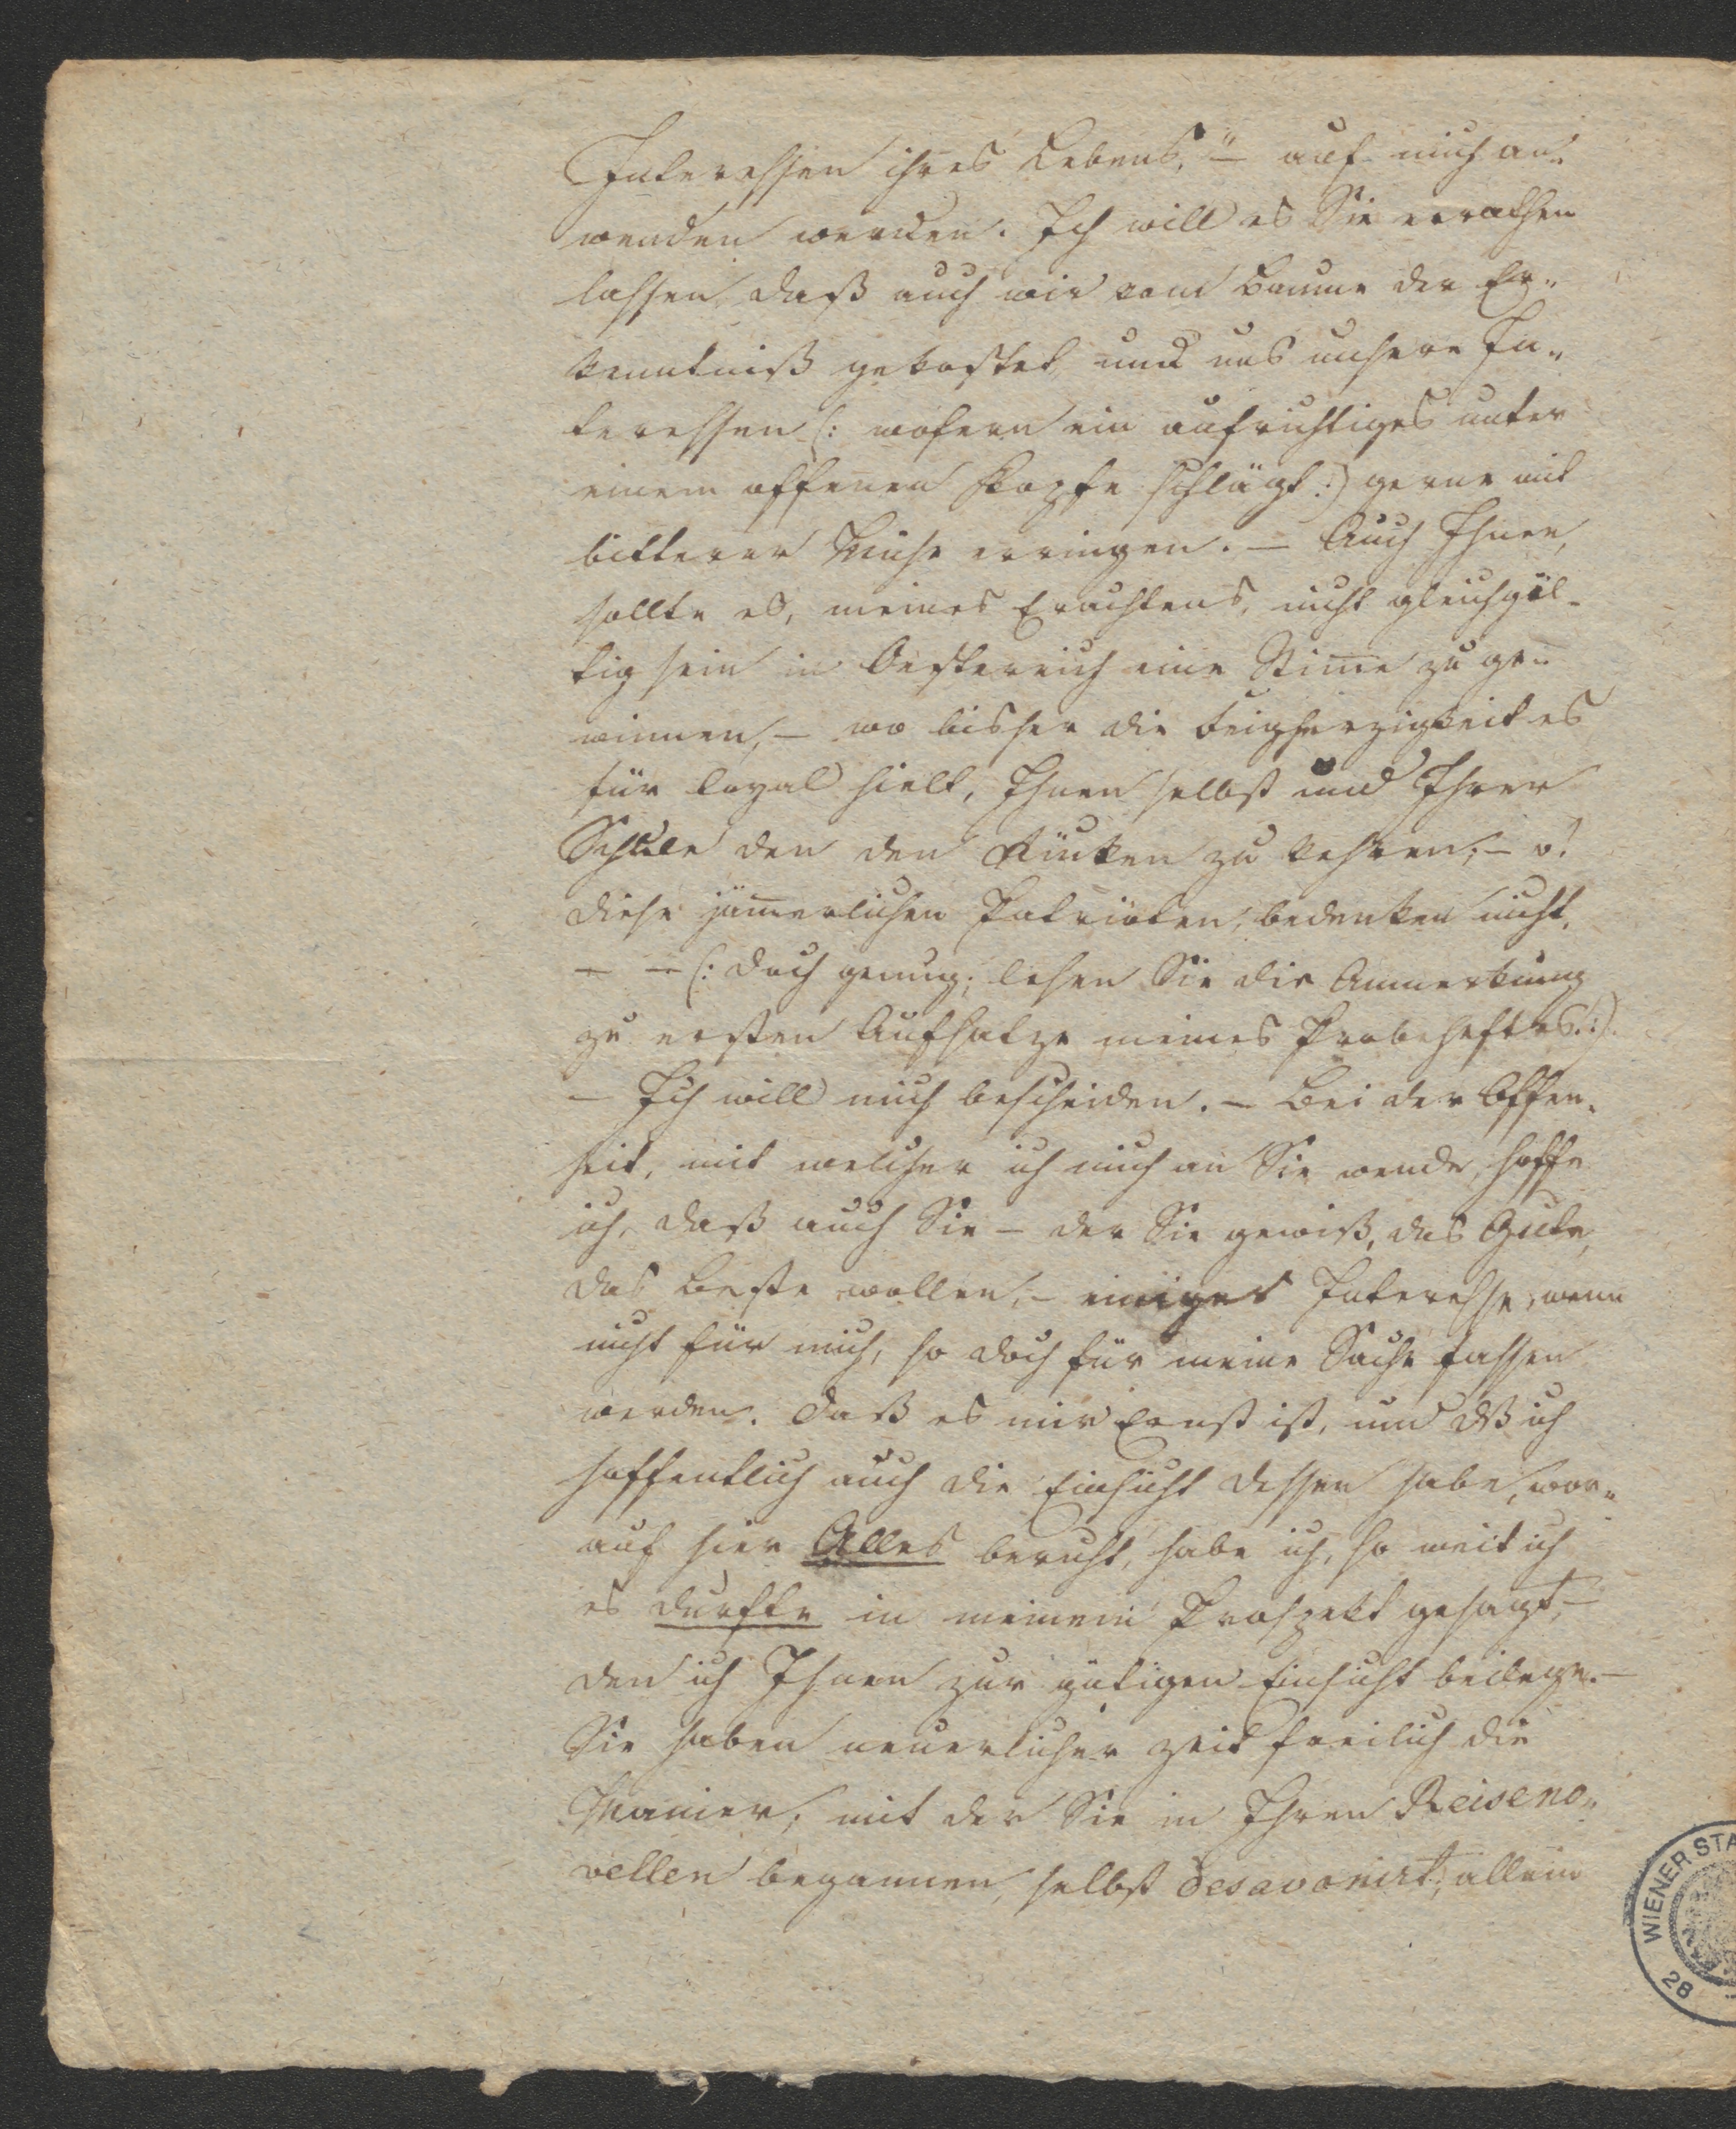 Interessen ihres Lebens," — auf mich an-
wenden werden. Ich will es Sie errathen
lassen, daß auch wir vom Baume der Er-
kenntniß gekostet, und uns unsere In-
teressen (: wofern ein aufrichtiges unter
einem offenen Kopfe schlägt :) gerne mit
bitterer Mühe erringen. — Auch Ihnen,
sollte es, meines Erachtens, nicht gleichgül-
tig sein in Oesterreich eine Stim̅e zu ge-
winnen, — wo bisher die Feigherzigkeit es
für loyal hielt, Ihnen selbst und Ihrer
Schule den den Rücken zu kehren; — o!
diese jäm̅erlichen Patrioten, bedenken nicht,
— — (: doch genug; lesen Sie die Anmerkung
zu ersten Aufsatze meines Probeheftes. :)
— Ich will mich bescheiden. — Bei der Offen-
heit, mit welcher ich mich an Sie wende, hoffe
ich, daß auch Sie — der Sie gewiß, das Gute,
das Beste wollen, — einiges Interesse, wenn
nicht für mich, so doch für meine Sache fassen
werden. Daß es mir Ernst ist, und dß ich
hoffentlich auch die Einsicht dessen habe, wor-
auf hier Alles beruht, habe ich, so weit ich
es durfte in meinem Prospekt gesagt, —
den ich Ihnen zur gütigen Einsicht beilege. —
Sie haben neuerlicher Zeit freilich die
Manier, mit der Sie in Ihren Reiseno-
vellen begannen, selbst desavouirt; allein
WIENER STA
28